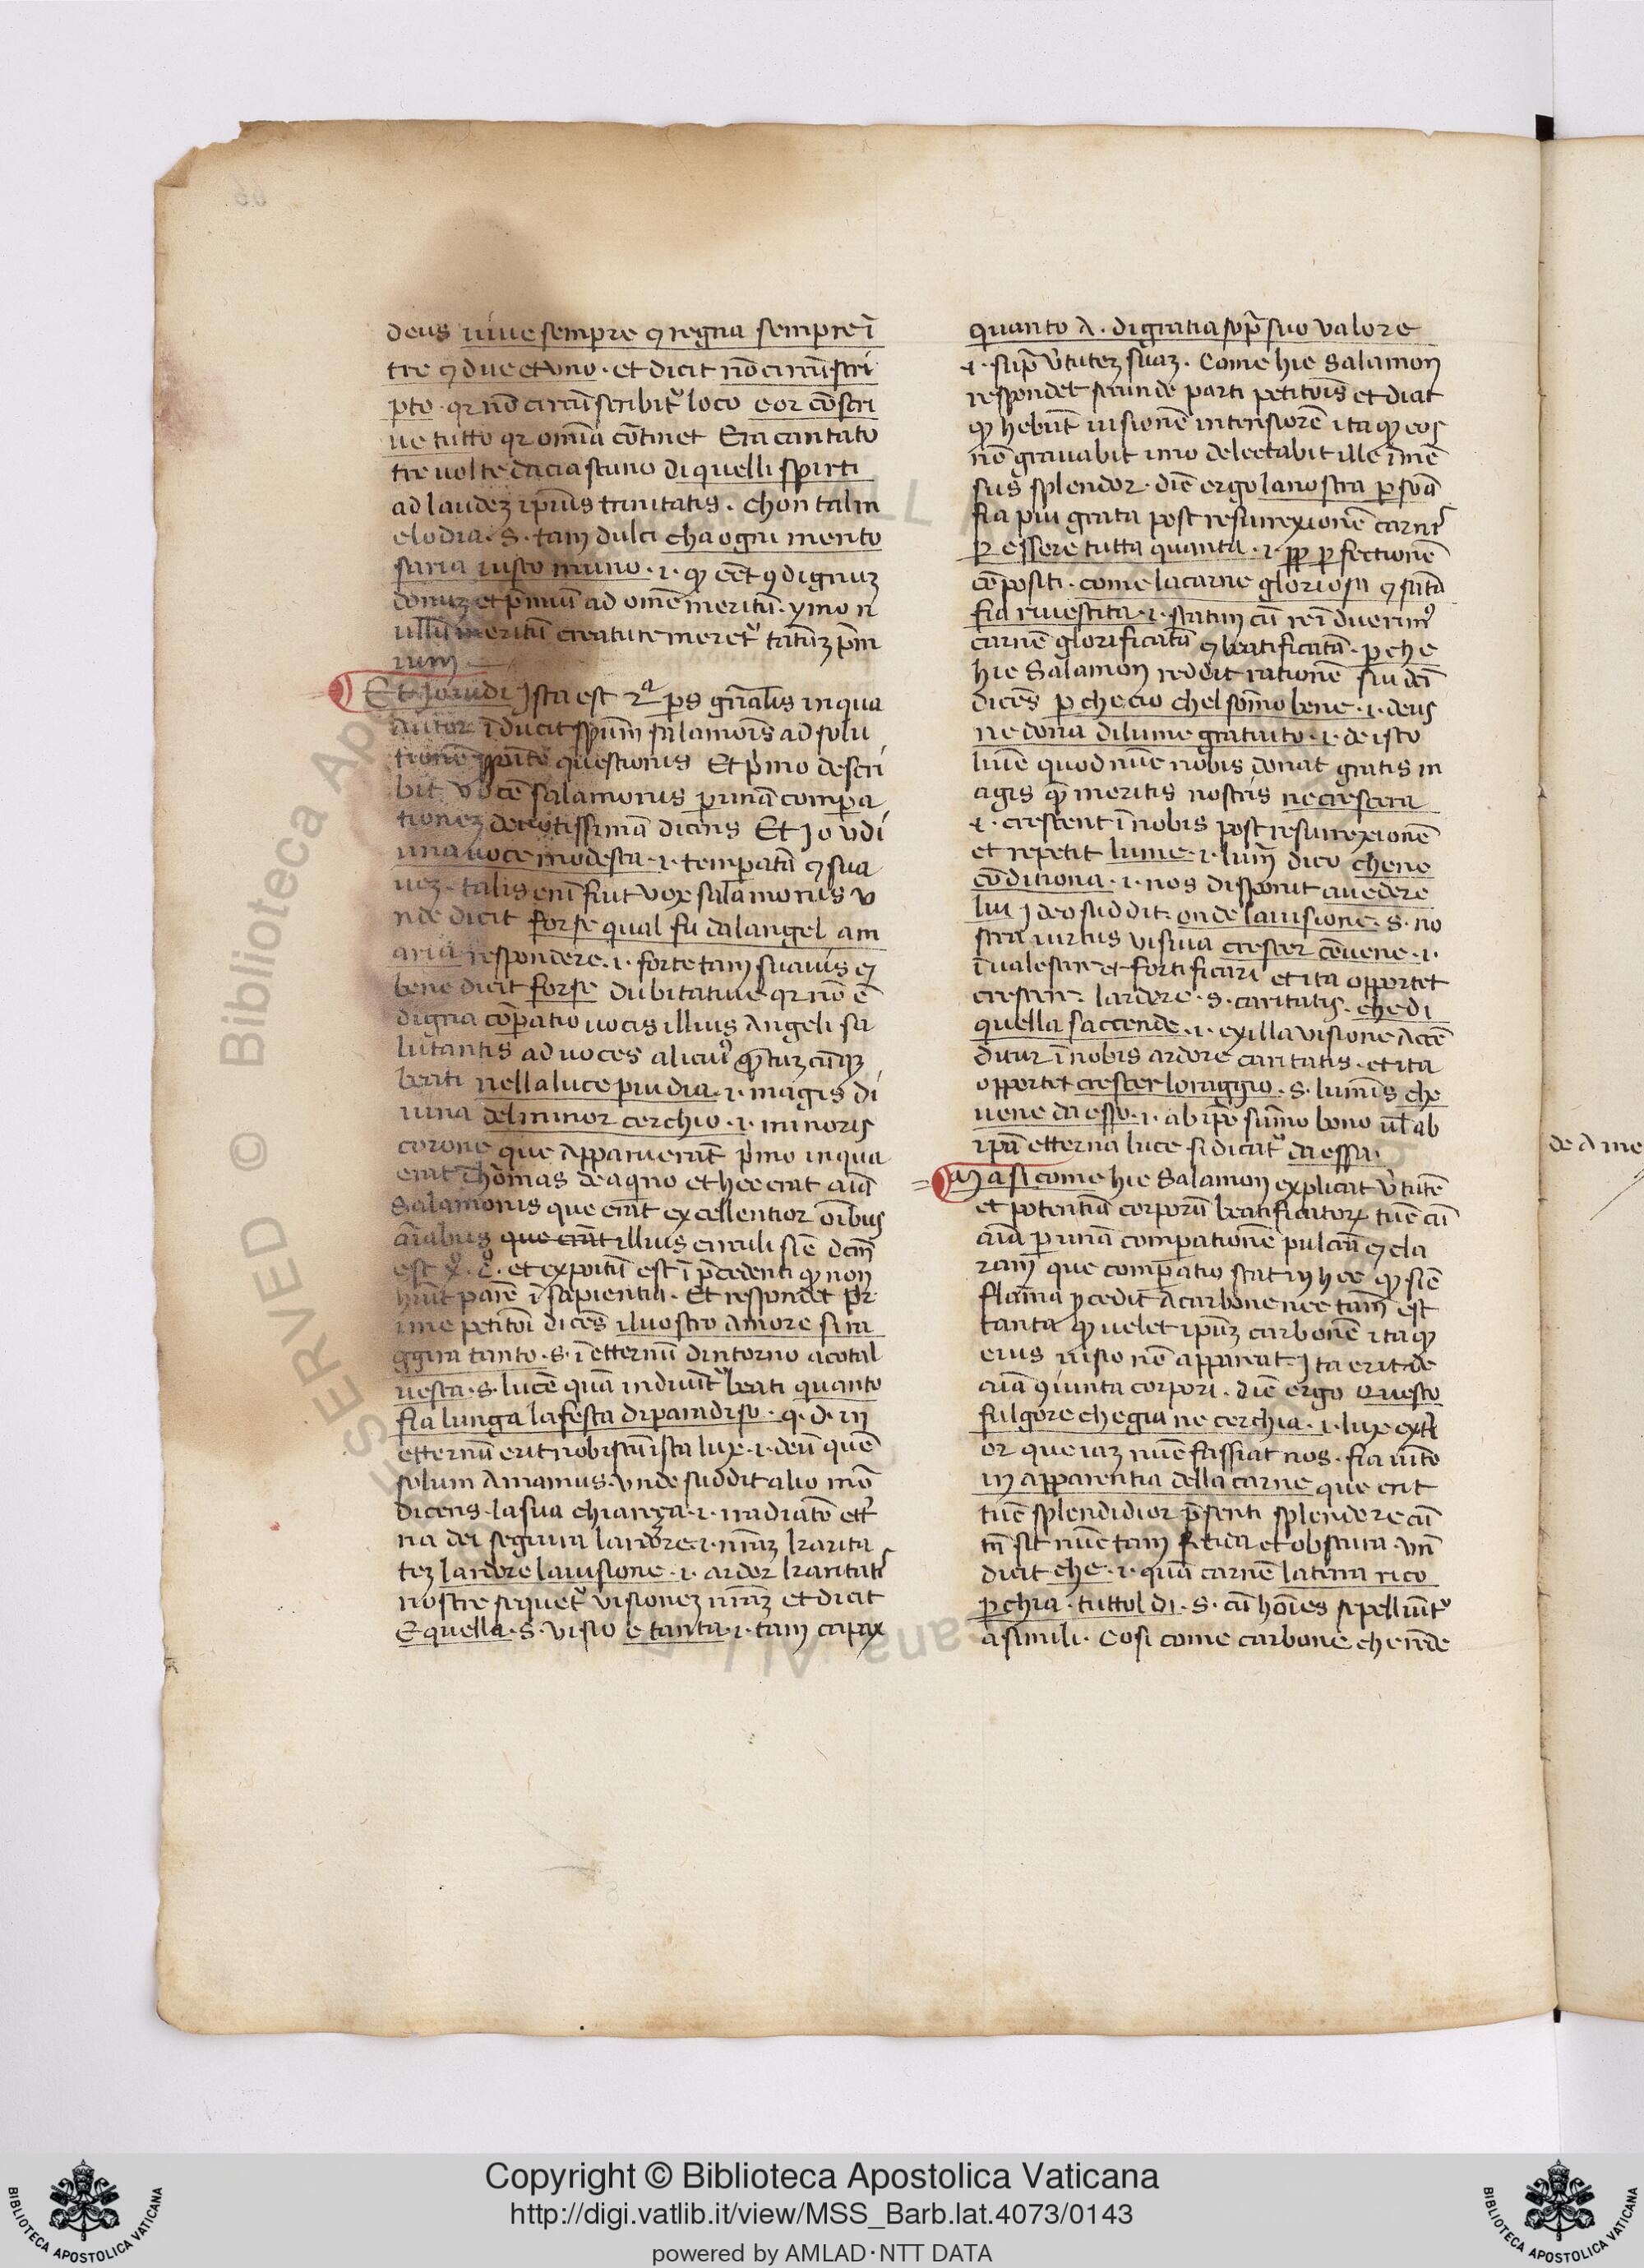 deus uiue sempre ꝯ regna sempre ī
tre ꝯ due et vno · et dicit nō circūscri
pto · qr nō circūscribit̾ loco eor cōscri
ue tutto qr omīa cōtinet Era cantato
tre uolte da ciascuno di quelli spirti
ad laudeꝫ ipīus trinitatis · chon tal m
elodia · s · tam dulci cha ogni merito
saria iusto muno · i · ꝙ eēt ꝯdignuꝫ
donuꝫ et p̄miū ad omē meritū · ymo n
ullū meritū creature meret̾ tātūꝫ p̄m
ium
Et Jo vudi Jsta est 2ᵃ ps gn̄alis in qua
Autor īducit spūm salamōis ad solu
tionē questionis Et p̍mo descri
bit vocē salamonis p unā compa
tioneꝫ deuotissimā dicens Et Jo vdi
una uoce modesta · i · tempatā ꝯ sua
ueꝫ · talis enī fuit vox salamonis v
nde dicit forse qual fu dalangel am
aria respondere · i · forte tam suauis ꝯ
bene dicit forse dubitatiue qr nō ē
digna cōpatio uocis illius Angeli sa
lutantis ad uoces alicuiꝰ
beati nella luce piu dia · i · magis di
uina del minor cerchio · i · minoris
corone que Apparuerat p̍mo in qua
erat Thomas de aqno et hec erat aīa
Salamonis que erāt excellentior oībus
aīabus que erāt illius circuli sic̄ dcm̄
est et expoitū est ī p̄cedenti ꝙ non
hūit parē ī sapientia · Et respondet pr
ime petitōi dicēs il uostro Amore si ra
ggira tanto · s · ī etternū dintorno a cotal
uesta · s · lucē quā induūt̾ beati quanto
fia lunga la festa di paradiso · q · d · in
etternū erit nobiscū ista lux · i · deū quē
solum Amamus · vnde suddit alio mō
dicens · la sua chiareça · i · irradiatō ett̾
na dei seguira lardore · i · nr̄aꝫ karita
teꝫ lardore la uisione · i · ardor karitati
nostre sequet̾ visioneꝫ nr̄aꝫ et dicit
E quella · s · visio e tanta · i · tam capax
quanto A · di gratia sop̄ suo valore
i · sup̄ v̄tuteꝫ suaꝫ · Come hic Salamon
respondet secunde parti petitōis et dicit
ꝙ hebūt uisionē intensiorē ita ꝙ eos
nō grauabit imo delectabit ille īmē
sus splendor · dic̄ ergo la nostra psōa
fia piu grata post resurrexionē carnis
p essere tutta quanta · i · pp pfectionē
cōpositi · come la carne gloriosa ꝯ sātā
fia riuestita · i · statim cū reīduerimꝰ
carnē glorificatā ꝯ beatificatā · p che
hic Salamon reddit rationē sui dcī
dicēs p che cio chel sōmo bene · i · deus
ne dona di lume gratuito · i · de isto
lumē quod nūc nobis donat gratis m
agis q̄ meritis nostris ne crescera
i · crescent ī nobis post resurrexionē
et repetit lume · i · lum̄ dico che ne
cōditiona · i · nos disponit a uedere
lui Jdeo suddit · onde la uisione · s · no
stra uirtus visiua crescer cōuene · i ·
īualescere et fortificari et ita opportet
crescere · lardore · s · caritatis · che di
quella saccende · i · ex illa visione Accē
ditur ī nobis ardore caritatis · et ita
opportet crescer lo raggio · s · luminis che
uene da esso · i · ab ipē sum̄o bono ul̄ ab
ipā etterna luce si dicat̾ da essa ·
Ma si come hic Salamon explicat v̄tutē
et potentiā corporū beatificatorꝝ tūc cū
aīa p unā compationē pulcrā ꝯ cla
ram que compatio stat in hec ꝙ sic̄
flāma pcedit A carbone nec tam̄ est
tanta ꝙ uelet ipūꝫ carbonē ita ꝙ
eius uisio nō appareat · Jta erit de
aīa ꝯiunta corpori · dic̄ ergo Questo
fulgore che gia ne cerchia · i · lux ext̾i
or que iaꝫ nūc fassiat nos · fia uīto
in apparentia della carne que erit
tūc splendidior p̄senti splendore cū
tn̄ sit nūc tam fetida et obscura · vn̄
dicit che · i · quā carnē la terra rico
pchia · tuttol di · s · cū hōies sepelliūt̾
a simili · Cosi come carbone che rēde
de A me
Copyright © Biblioteca Apostolica Vaticana
http://digi.vatlib.it/view/MSS_Barb.lat.4073/0143
powered by AMLAD·NTT DATA
BIBLIOTECA APOSTOLICA VATICANA
BIBLIOTECA APOSTOLICA VATICANA